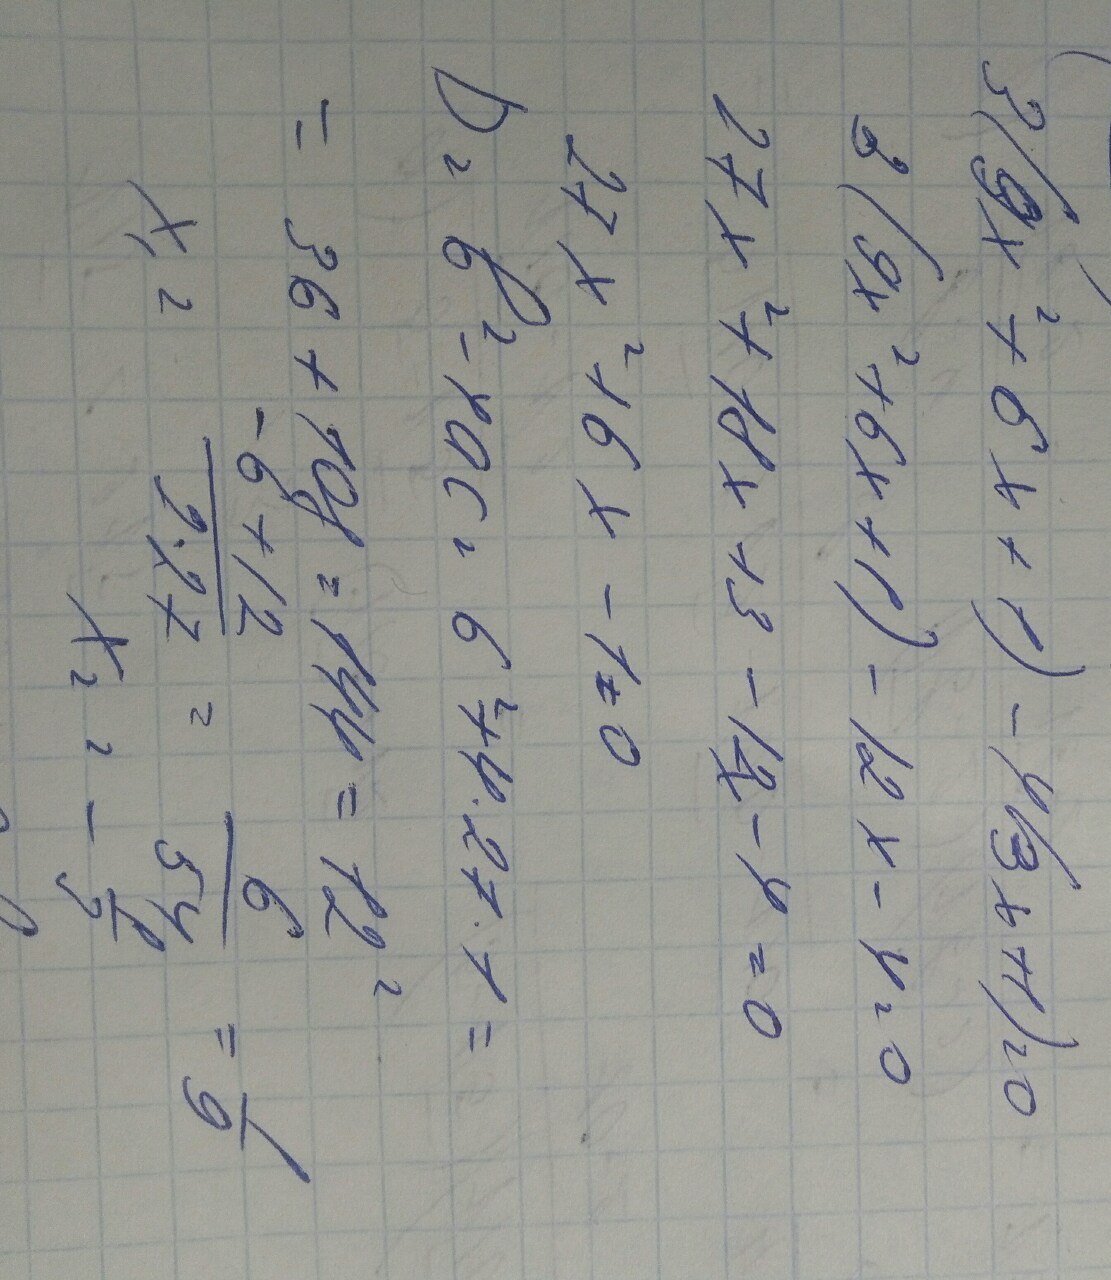 3(9x²+6x+1)-4(3x+1)=0
3(9x²+6x+1)-12x-4=0
27x²+18x+3-12x-4=0
27x²+6x-1=0
D=b²-4ac=6²+4·27·1=
=36+108=144=12²
x₁=\frac{-6+12}{2·27}=\frac{6}{54}=\frac{1}{9}
x₂=-\frac{1}{3}